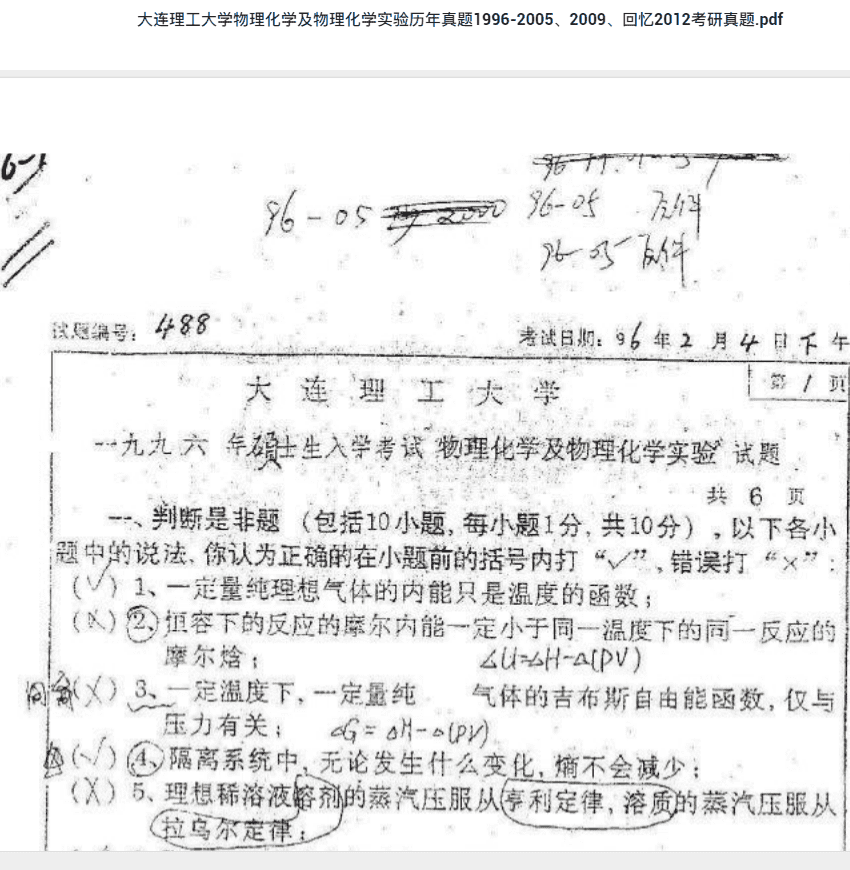 大连理工大学物理化学及物理化学实验历年真题1996-2005、2009、回忆2012考研真题.pdf
96-05
96-05
96-05
试题编号：488
考试日期：96年2月4日下午
大连理工大学
第1页
一九九六年硕士生入学考试“物理化学及物理化学实验”试题
共6页
一、判断是非题（包括10小题，每小题1分，共10分），以下各小
题中的说法，你认为正确的在小题前的括号内打“√”，错误打“×”：
(√) 1、一定量纯理想气体的内能只是温度的函数；
(×) 2、恒容下的反应的摩尔内能一定小于同一温度下的同一反应的
摩尔焓；
△U=△H-△(PV)
(×) 3、一定温度下，一定量纯 气体的吉布斯自由能函数，仅与
压力有关；
△G=△H-△(PV)
(√) 4、隔离系统中，无论发生什么变化，熵不会减少；
(×) 5、理想稀溶液溶剂的蒸汽压服从亨利定律，溶质的蒸汽压服从
拉乌尔定律；